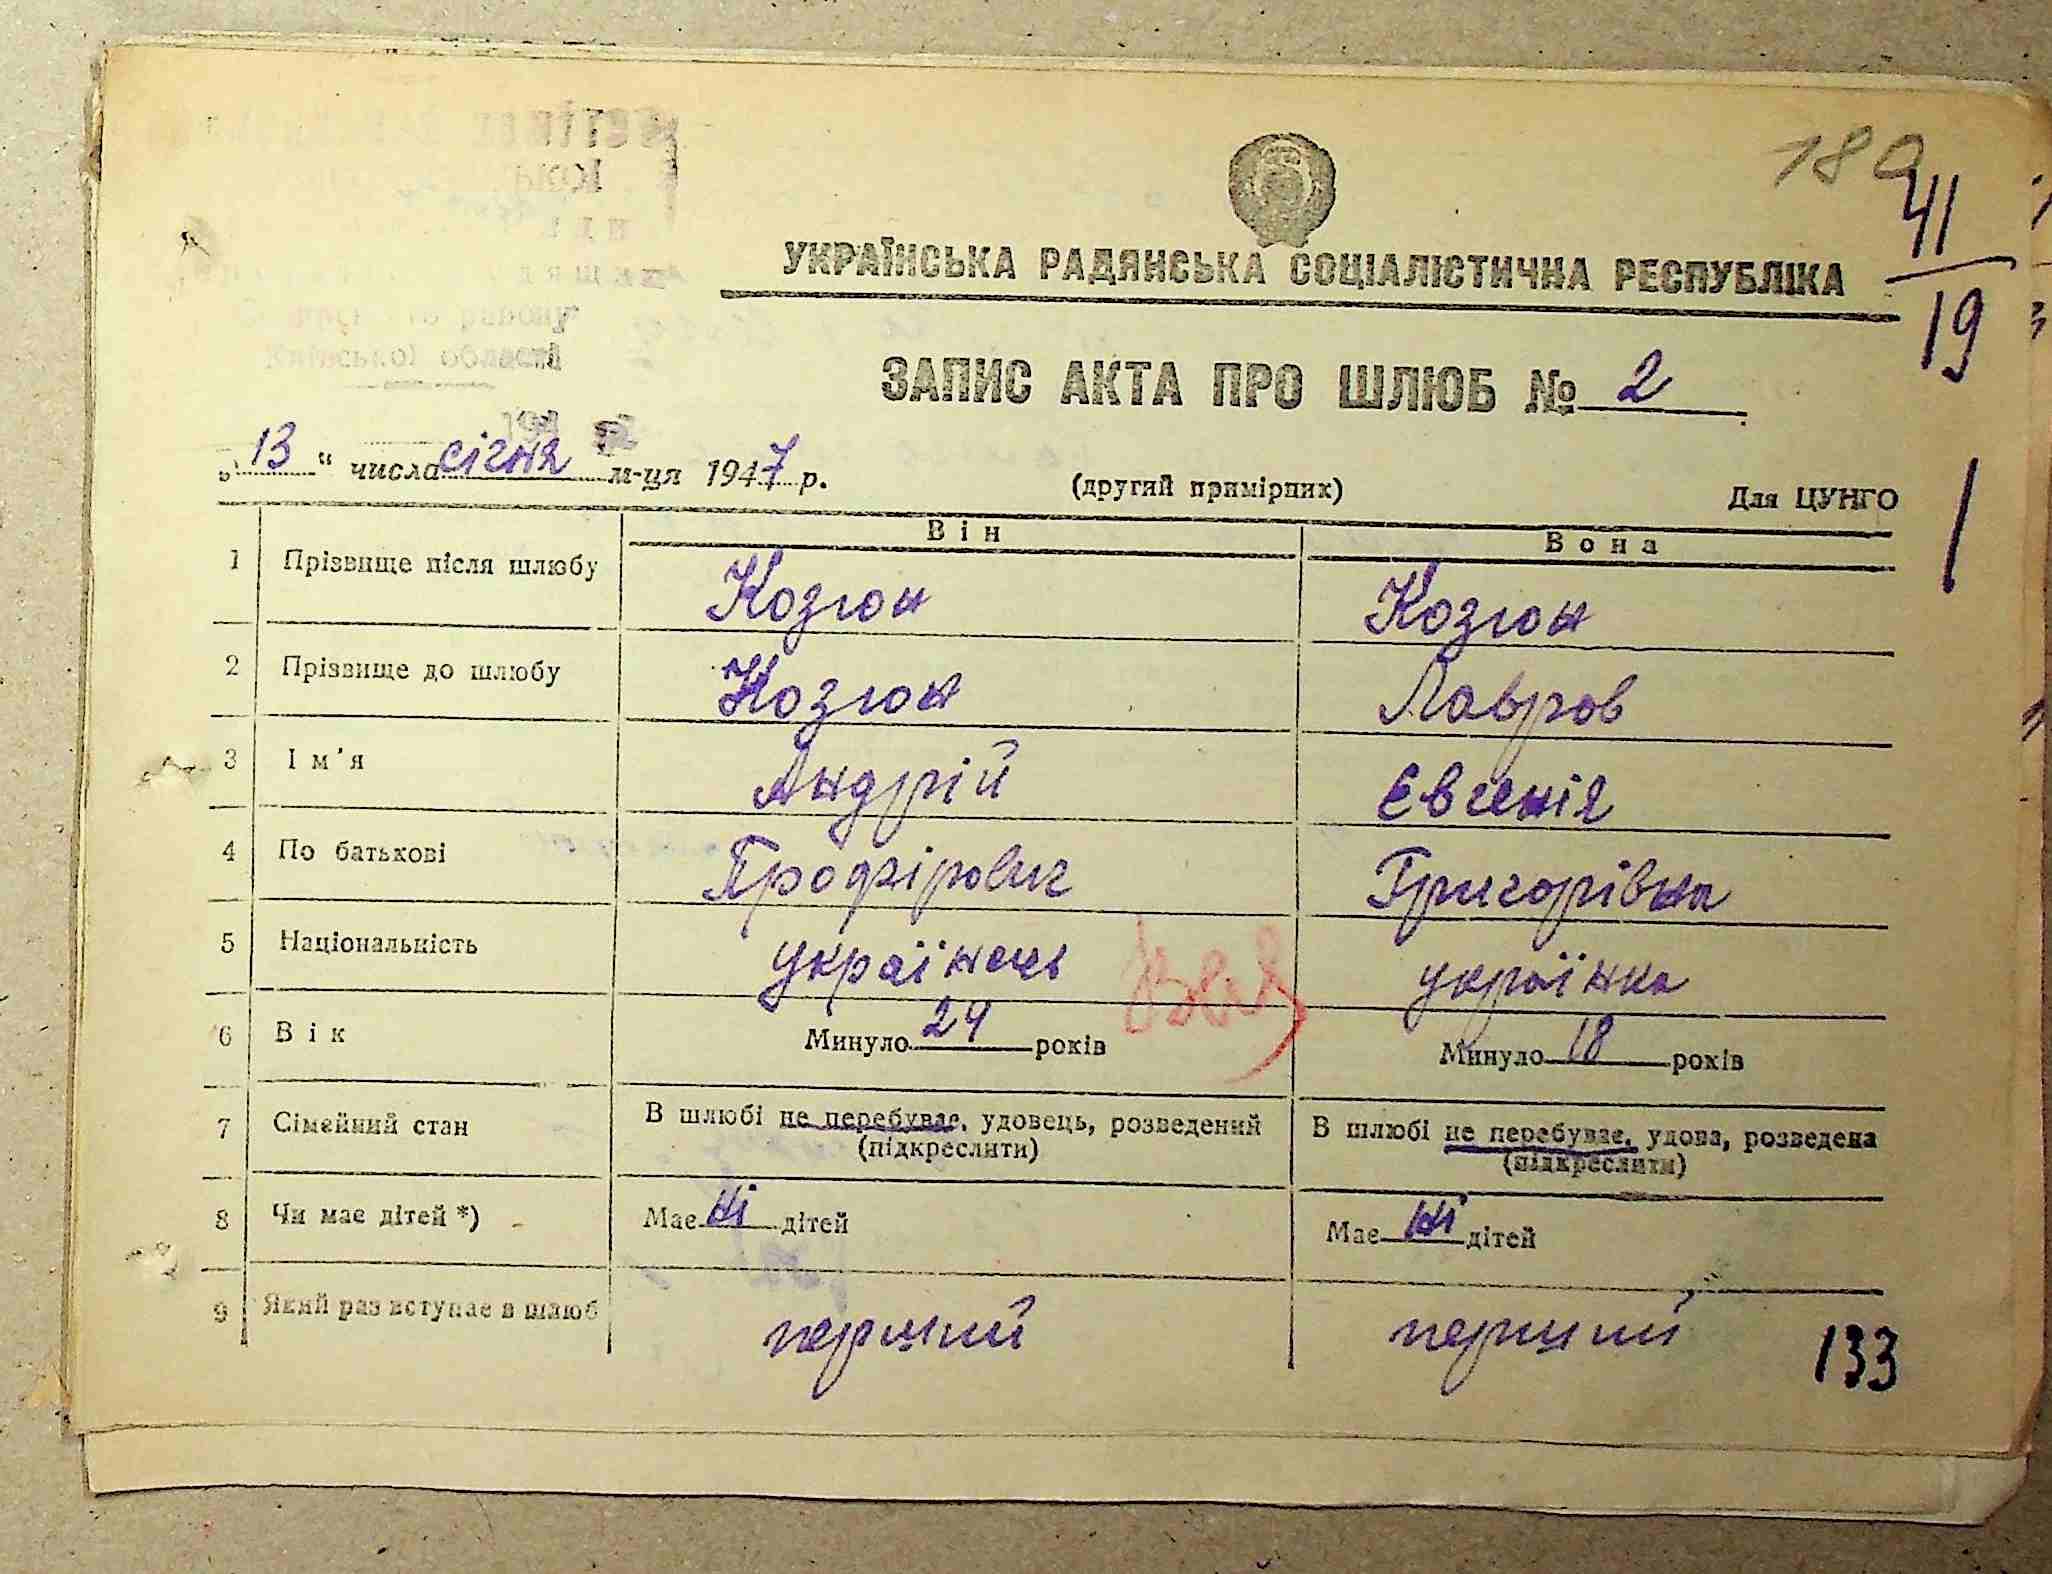 189
41
19
УКРАЇНСЬКА РАДЯНСЬКА СОЦІАЛІСТИЧНА РЕСПУБЛІКА
ЗАПИС АКТА ПРО ШЛЮБ № 2
„13“ числа січня м-ця 1947 р. (другий примірник) Для ЦУНГО
Він Вона
1 Прізвище після шлюбу Козюн Козюн
2 Прізвище до шлюбу Козюн Лавров
3 Ім’я Андрій Євгенія
4 По батькові Профірович Григорівна
5 Національність українець українка
6 Вік Минуло 29 років Минуло 18 років
7 Сімейний стан В шлюбі не перебуває, удовець, розведений (підкреслити) В шлюбі не перебуває, удова, розведена (підкреслити)
8 Чи має дітей *) Має ні дітей Має ні дітей
9 Який раз вступає в шлюб перший перший
133